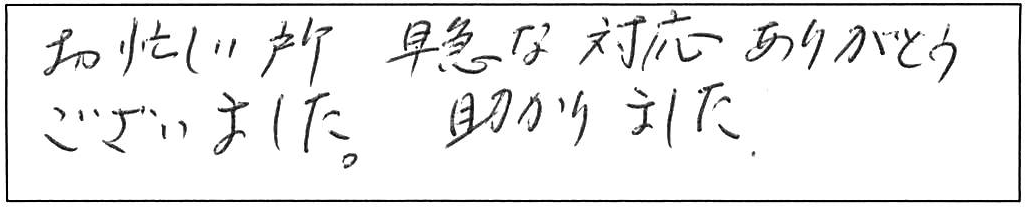 お忙しい所 早急な対応ありがとう
ございました。 助かりました.